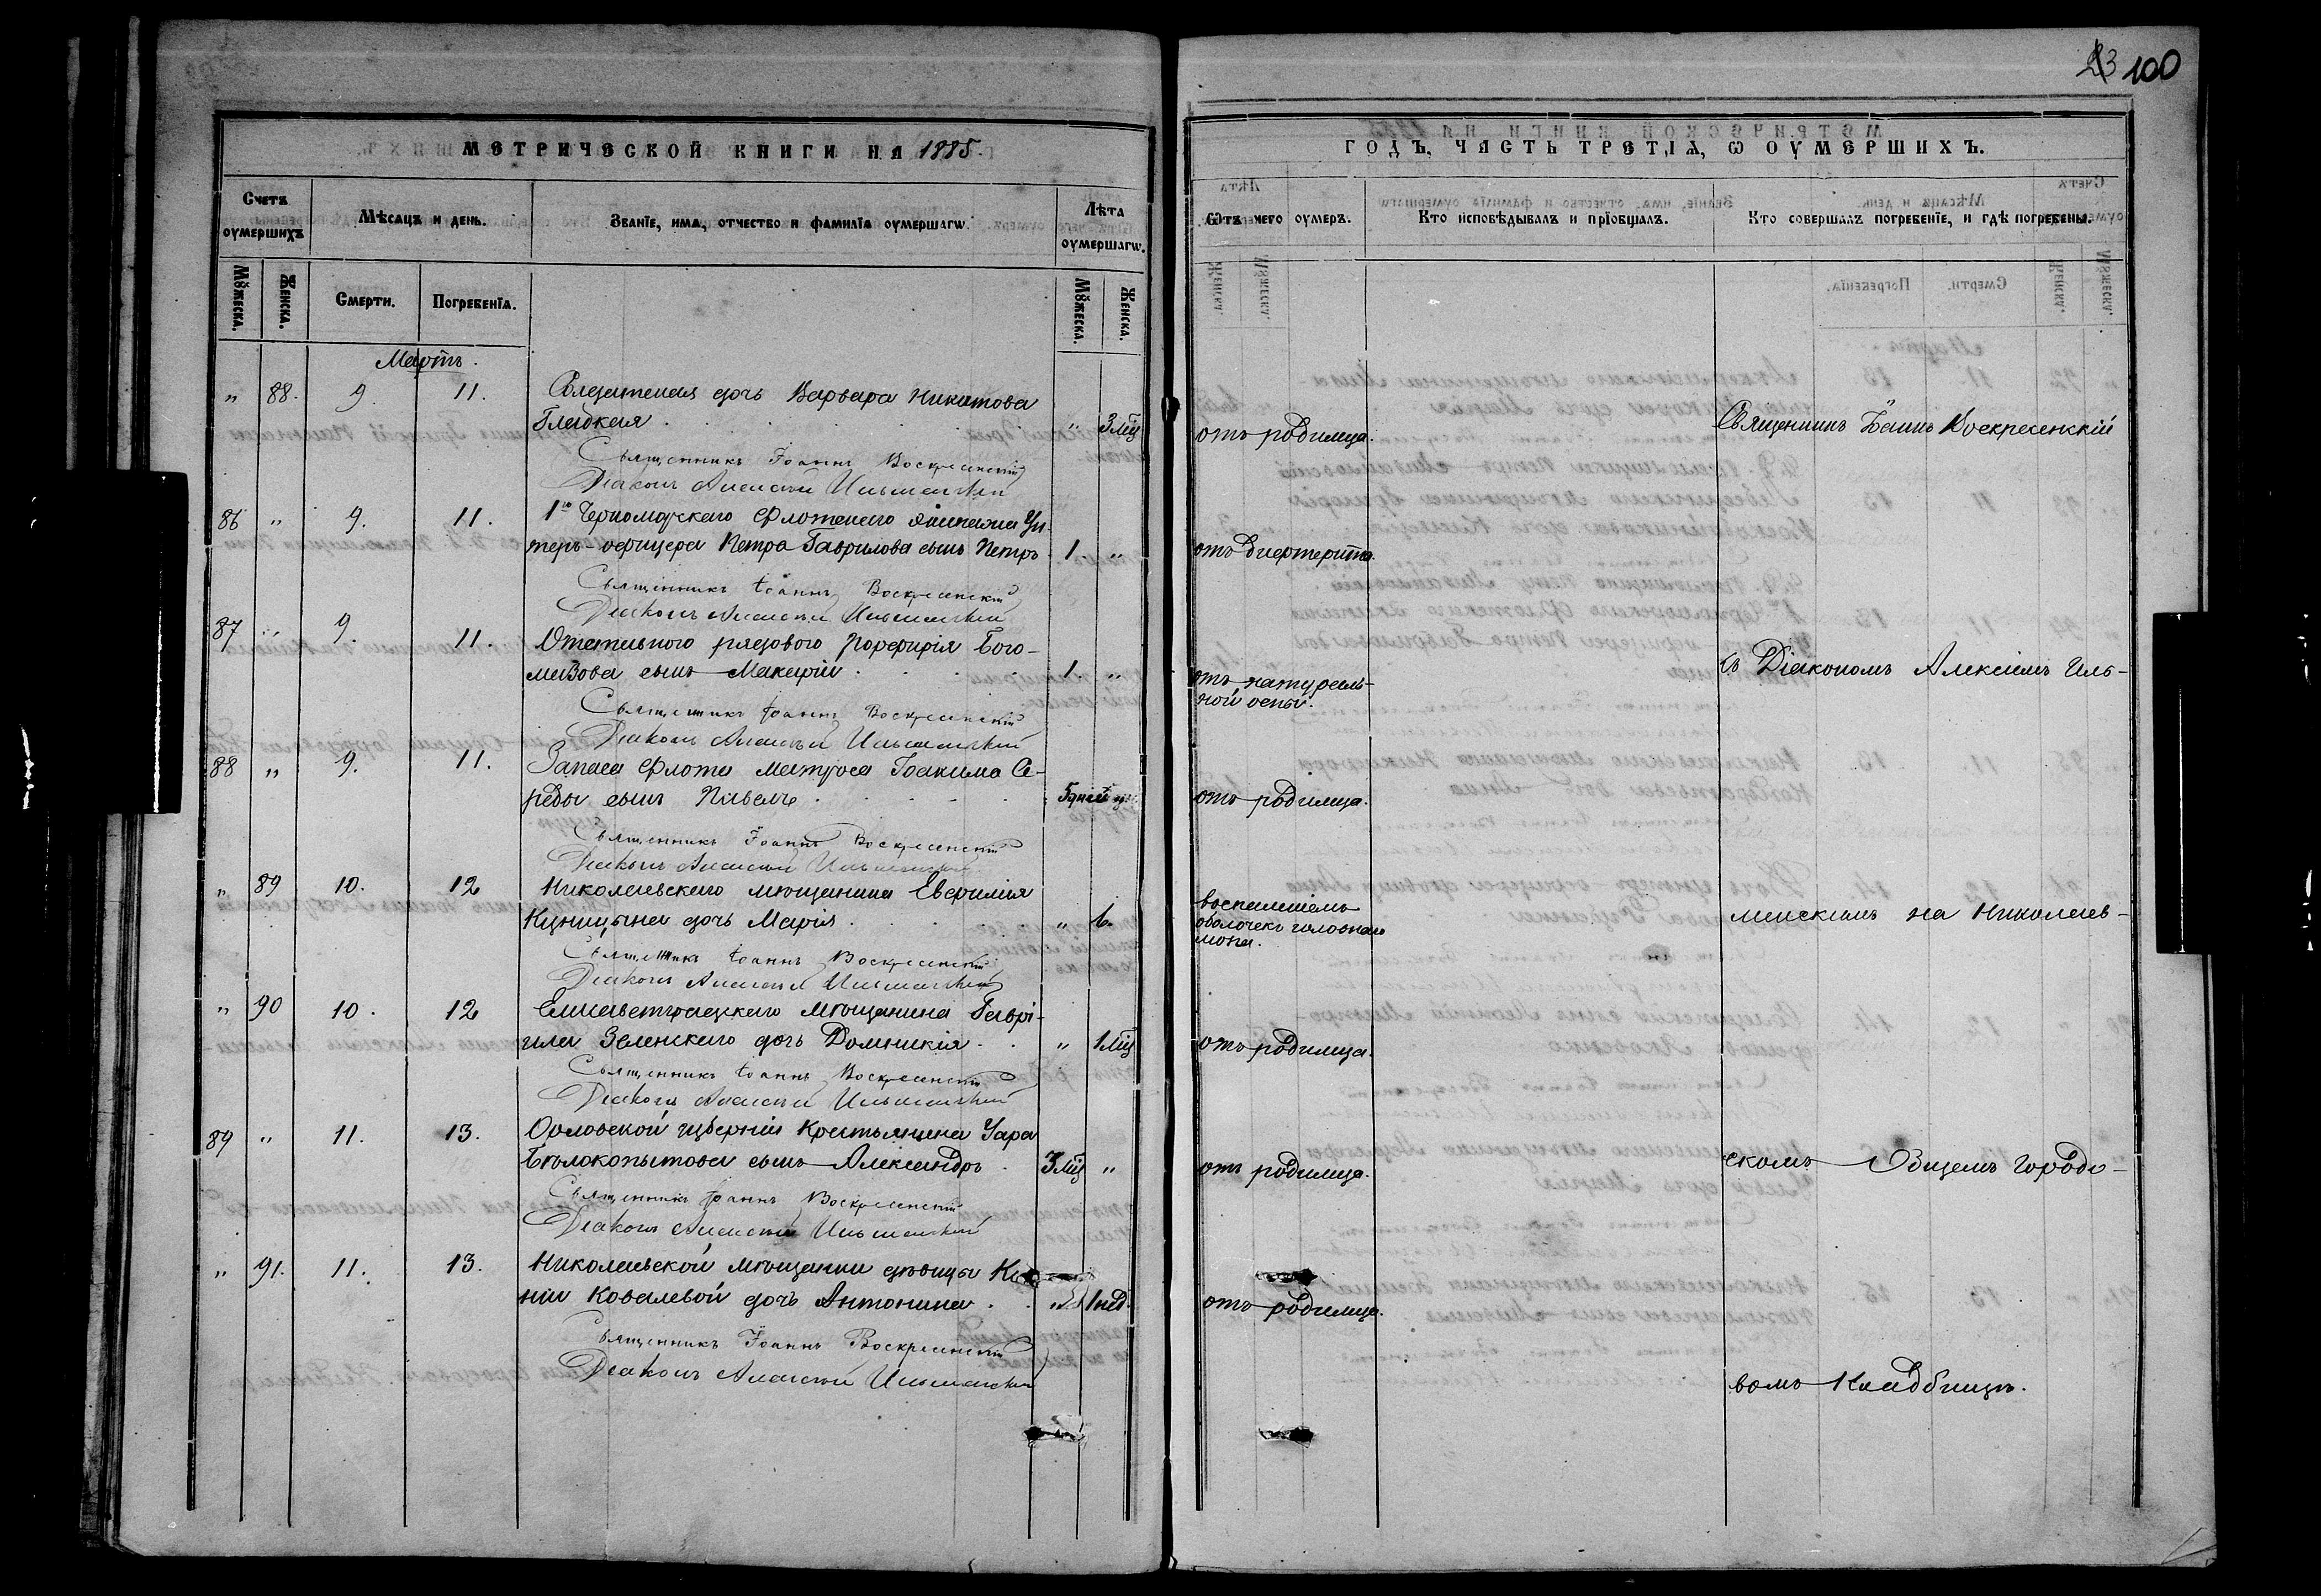 23 100
МЕТРИЧЕСКОЙ КНИГИ НА 1885.
Счетъ оумершихъ
Мѣсяцъ и день.
Званїе, имѧ, отчество и фамилїа оумершагѡ.
Лѣта оумершагѡ.
Мꙋжеска.
Женска.
Смерти.
Погребенїѧ.
Мꙋжеска.
Женска.
Мартъ.
" 88. 9. 11. Солдатская дочь Варвара Никитова
Гладкая . . . . . . " 3 мѣс
Священникъ Іоаннъ Воскресенскій
Діаконъ Алексѣй Ильменскій
86 " 9. 11. 1го Черноморскаго Флотскаго экипажа Ун-
теръ-офицера Петра Гаврилова сынъ Петръ 1. "
Священникъ Іоаннъ Воскресенскій
Діаконъ Алексѣй Ильменскій
87 " 9. 11. Отставного рядового Порфирія Бого-
мазова сынъ Макарій . . . . 1. "
Священникъ Іоаннъ Воскресенскій
Діаконъ Алексѣй Ильменскій
88 " 9. 11. Запаса Флота матроса Іоакима Се-
реды сынъ Павелъ . . . . . 5 дней
Священникъ Іоаннъ Воскресенскій
Діаконъ Алексѣй Ильменскій
" 89 10. 12 Николаевскаго мѣщанина Евфимія
Куницына дочь Марія . . . . " 6.
Священникъ Іоаннъ Воскресенскій
Діаконъ Алексѣй Ильменскій
" 90 10. 12 Елисаветградскаго мѣщанина Гаврі-
ила Зеленскаго дочь Домникія . . " 1 мѣс
Священникъ Іоаннъ Воскресенскій
Діаконъ Алексѣй Ильменскій
89 " 11. 13. Орловской губерніи Крестьянина Уара
Бѣлокопытова сынъ Александръ . 3 мѣс "
Священникъ Іоаннъ Воскресенскій
Діаконъ Алексѣй Ильменскій
" 91. 11. 13. Николаевской мѣщанки дѣвицы
ніи Ковалевой дочь Антонина . . " 1 нед.
Священникъ Іоаннъ Воскресенскій
Діаконъ Алексѣй Ильменскій
ГОДЪ, ЧАСТЬ ТРЕТІѦ, Ѡ ОУМЕРШИХЪ.
Ѿтъ чего оумеръ.
Кто исповѣдывалъ и прїобщалъ.
Кто совершалъ погребенїе, и гдѣ погребены.
отъ родимца.
Священникъ Іоаннъ Воскресенскій
отъ дифтерита.
отъ натураль-
ной оспы.
съ Діакономъ Алексіемъ Иль-
отъ родимца.
воспаленіемъ
оболочекъ головнаго
мозга.
менскимъ на Николаев-
отъ родимца.
отъ родимца.
скомъ Общемъ Городо-
отъ родимца.
вомъ Кладбищѣ.